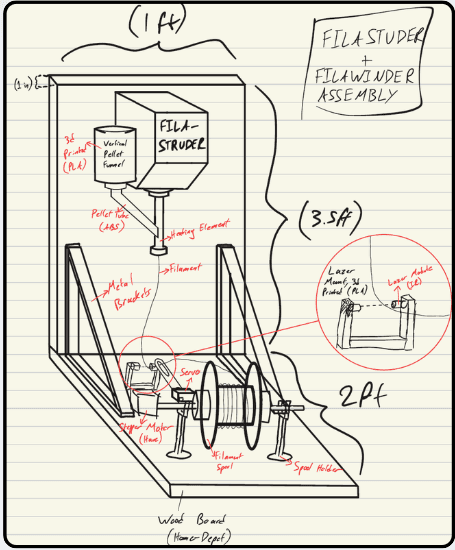 (1 ft)
FILASTUDER
+
FILAWINDER
ASSEMBLY
(1 in)
3d
Printed
(PLA)
Vertical
Pellet
Funnel
FILA-
STRUDER
Pellet Tube
(ABS)
Heating Element
Filament
(3.5ft)
Metal
Brackets
Lazer
Mount, 3d
Printed (PLA)
Lazer Module
(IR)
Servo
2ft
Stepper Motor
(Have)
Filament
Spool
Spool Holder
Wood Board
(Home Depot)